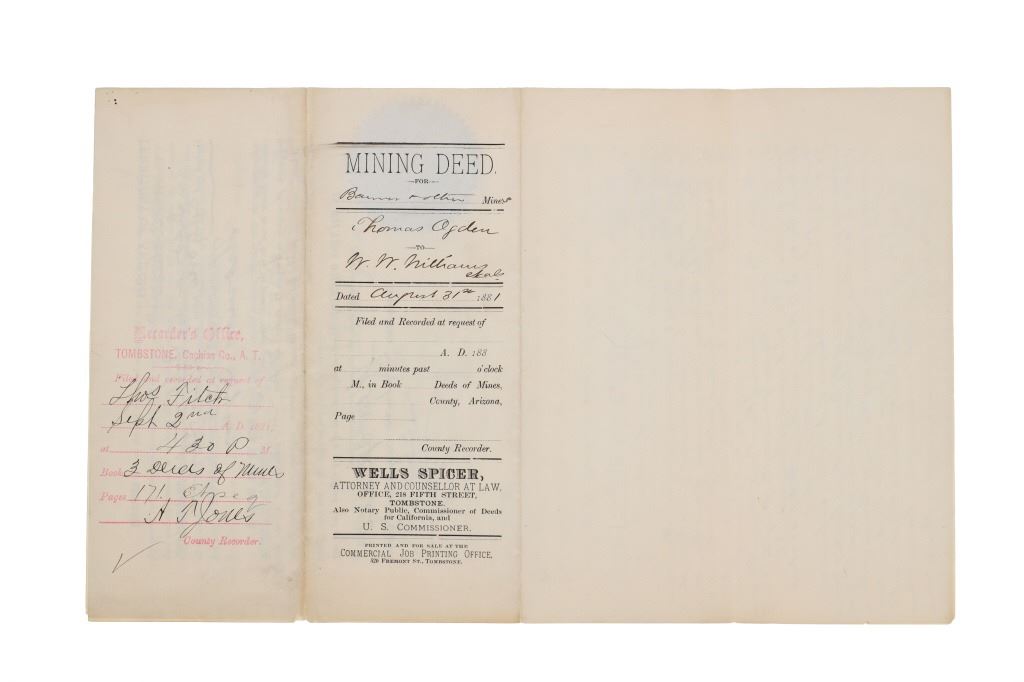 Recorder's Office,
TOMBSTONE, Cochise Co., A. T.
Filed and recorded at request of
Thos Fitch
Sept 2nd A. D. 1881,
at 4 30 P M
Book 3 Deeds of Mines
Pages 171
A T Jones
County Recorder.
MINING DEED.
—FOR—
Banner & other Mines
Thomas Ogden
—TO—
W. W. Williams
et al.
Dated August 31st 1881
Filed and Recorded at request of
A. D. 188
at minutes past o'clock
M., in Book Deeds of Mines,
County, Arizona,
Page
County Recorder.
WELLS SPICER,
ATTORNEY AND COUNSELLOR AT LAW.
OFFICE, 218 FIFTH STREET,
TOMBSTONE.
Also Notary Public, Commissioner of Deeds
for California, and
U. S. COMMISSIONER.
PRINTED AND FOR SALE AT THE
COMMERCIAL JOB PRINTING OFFICE,
520 FREMONT ST., TOMBSTONE.